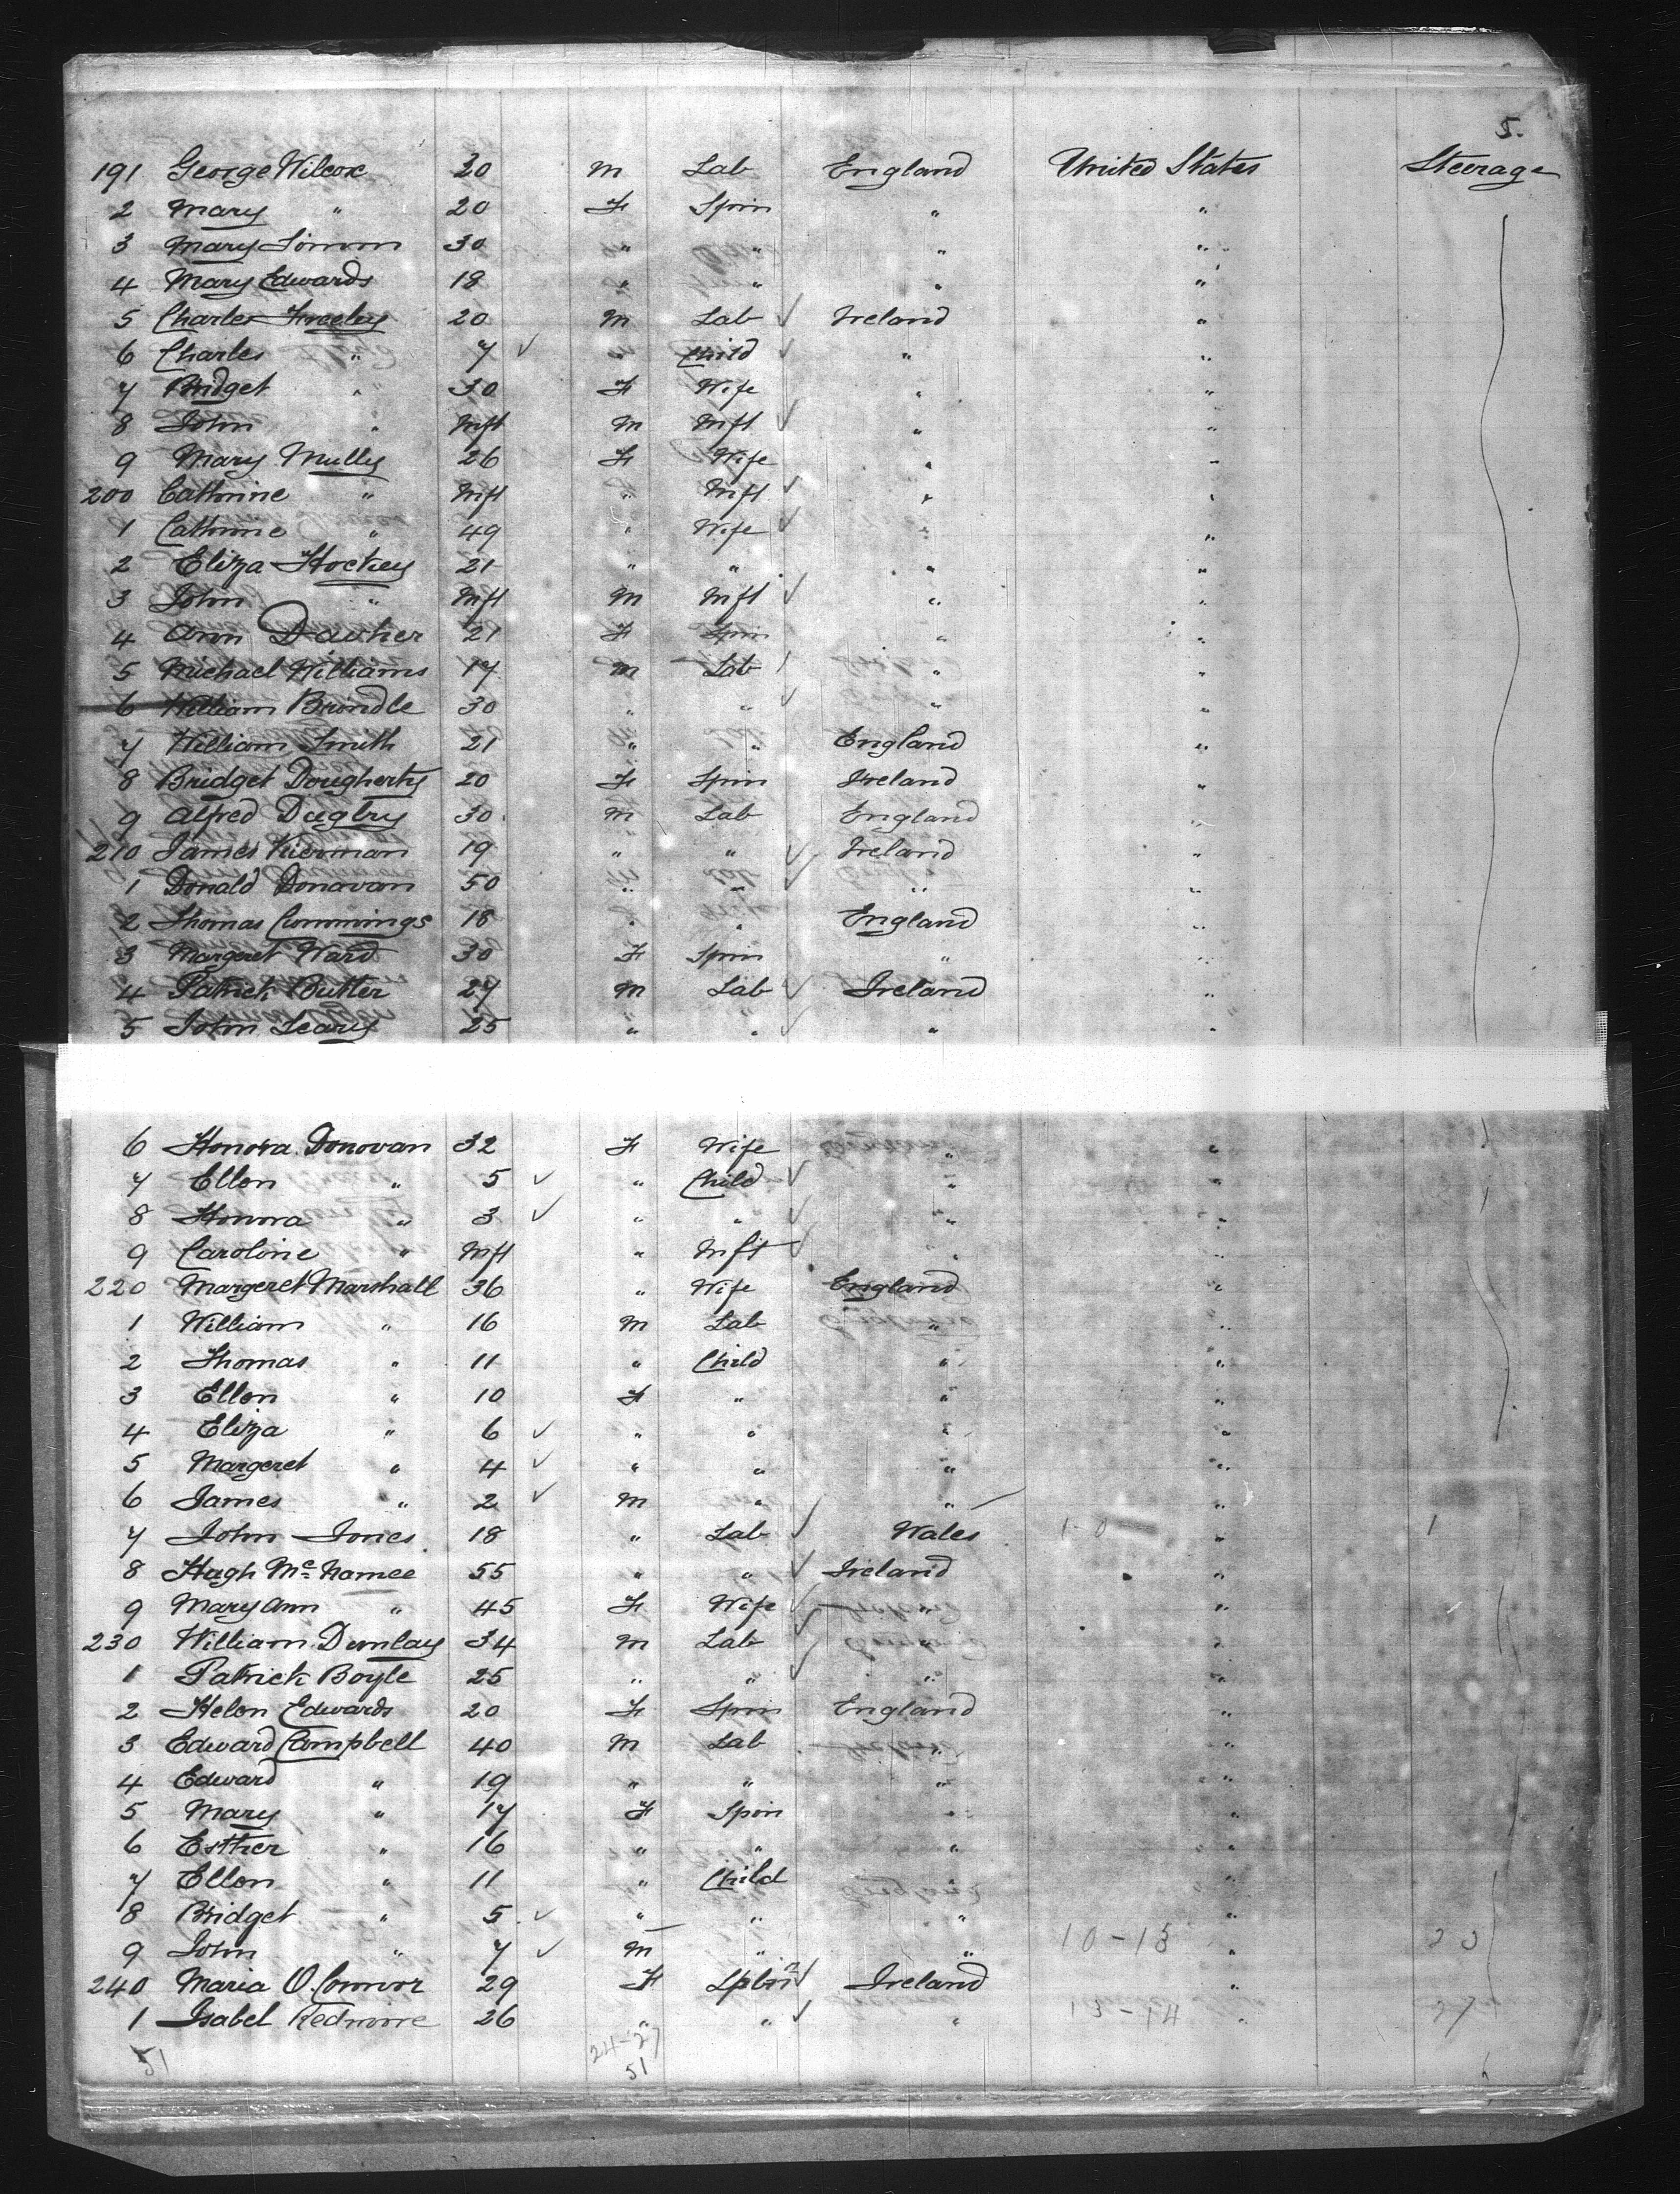 5.
191 George Wilcox 30 M Lab England United States Steerage
2 Mary " 20 F Spin " "
3 Mary 30 " " " "
4 Mary Edwards 18 " " " "
5 Charles 20 M Lab ✓ Ireland "
6 Charles " 7 ✓ " Child ✓ " "
7 Bridget " 30 F Wife " "
8 John " Inft M Inft ✓ " "
9 Mary Mully 26 F Wife " "
200 Cathrine " Inft " Inft ✓ " "
1 Cathrine " 49 " Wife ✓ " "
2 Eliza Hockey 21 " " " "
3 John " Inft M Inft ✓ " "
4 Ann 21 F Spin " "
5 Michael Williams 17 M Lab " "
6 William Brindle 30 " " ✓ " "
7 William Smith 21 " " England "
8 Bridget Dougherty 20 F Spin Ireland "
9 Alfred Dagby 30 M Lab England "
210 James Kiernan 19 " " ✓ Ireland "
1 Donald Donavan 50 " " ✓ " "
2 Thomas Cummings 18 " " England "
3 Margeret Ward 30 F Spin " "
4 Patrick Butler 27 M Lab ✓ Ireland "
5 John Leary 25 " " ✓ " "
6 Honora Donovan 32 F Wife " "
7 Ellen " 5 ✓ " Child ✓ " "
8 Honora " 3 ✓ " " ✓ " "
9 Caroline " Inft " Inft ✓ " "
220 Margeret Marshall 36 " Wife England "
1 William " 16 M Lab " "
2 Thomas " 11 " Child " "
3 Ellen " 10 F " " "
4 Eliza " 6 ✓ " " " "
5 Margeret " 4 ✓ " " " "
6 James " 2 ✓ M " " "
7 John Jones 18 " Lab ✓ Wales 1-0 " 1
8 Hugh Mc Namee 55 " " ✓ Ireland "
9 Mary Ann " 45 F Wife ✓ " "
230 William Dunlay 34 M Lab ✓ " "
1 Patrick Boyle 25 " " ✓ " "
2 Helen Edwards 20 F Spin England "
3 Edward Campbell 40 M Lab " "
4 Edward " 19 " " " "
5 Mary " 17 F Spin " "
6 Esther " 16 " " " "
7 Ellen " 11 " Child " "
8 Bridget " 5 ✓ " " " "
9 John " 7 ✓ M " " 10-13 " 23
240 Maria O.Connor 29 F Spin ✓ Ireland "
1 Isabel Redmore 26 " " ✓ " 13-14 " 27
51 24-27
51